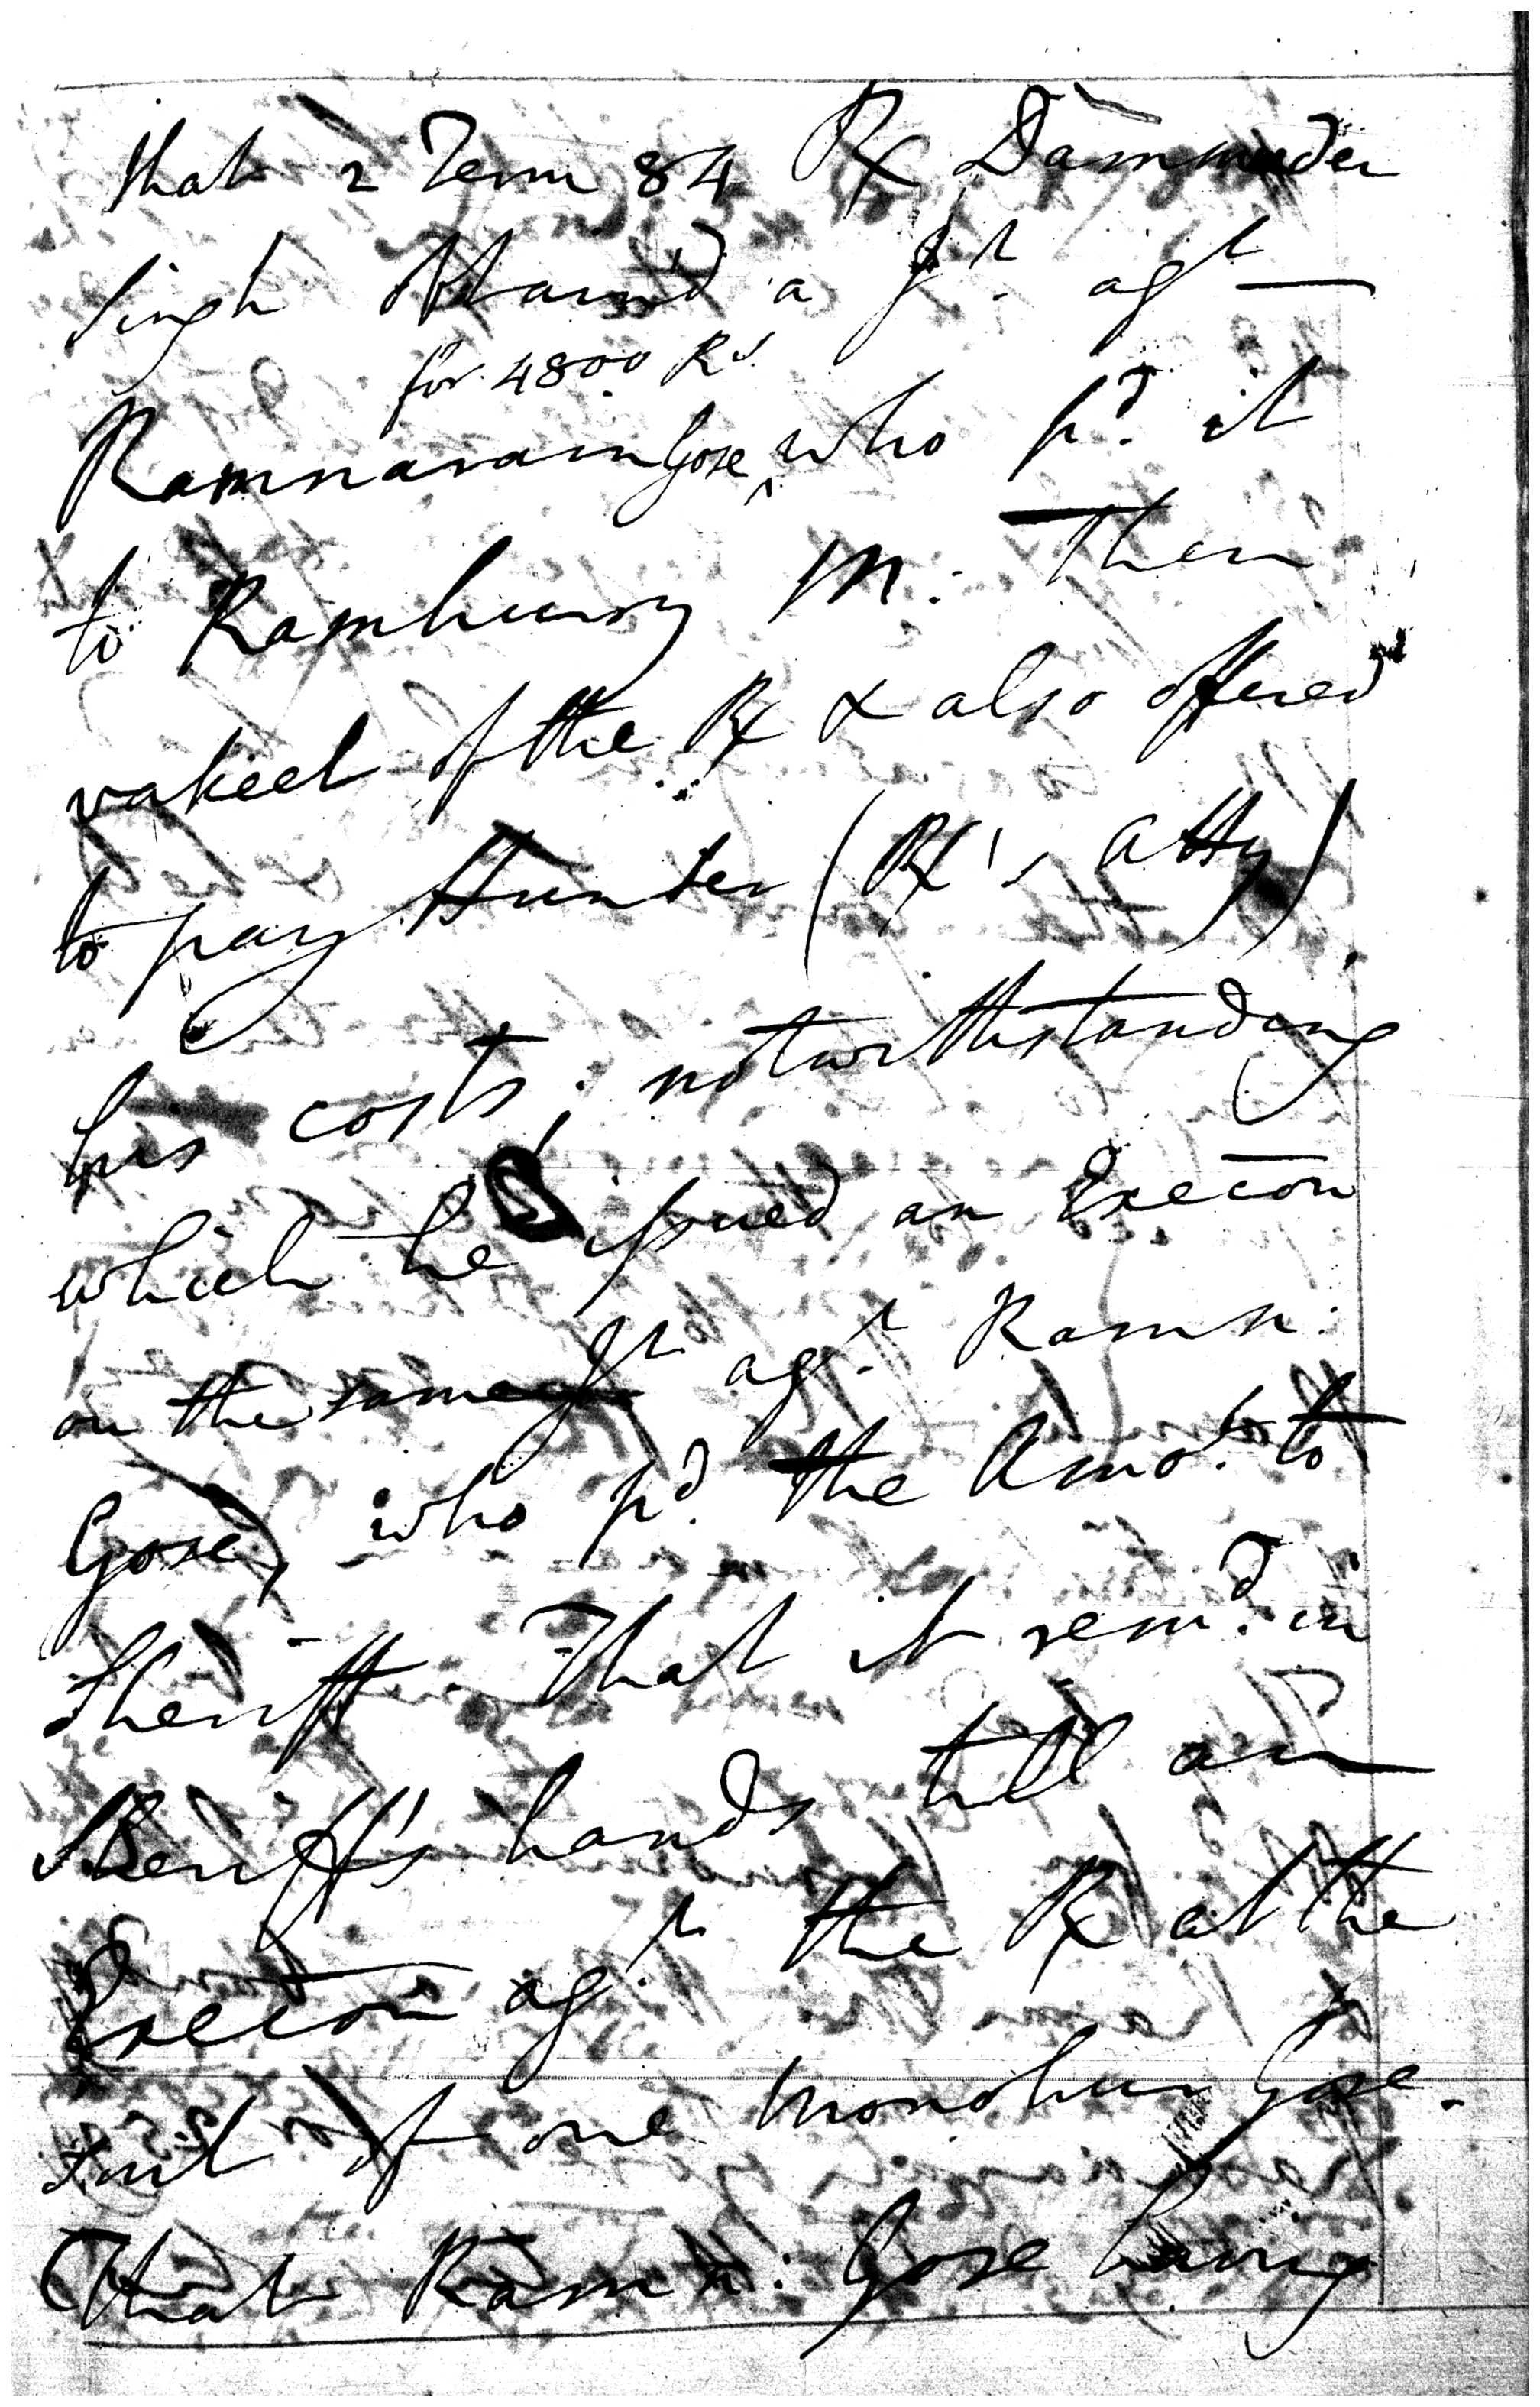 that 2 Term 84 Rx Dammuder
Singh Obtain'd a Jt. agt
for 4800 Rs.
Ramnarain Gose, who pd. it
to Ramhurry M: then
vakeel of the Rx & also offered
to pay Hunter (Rx's Atty)
his costs; notwithstanding
which he issued an Execon
on the same Jt agt. Ramn:
Gose, who pd. the Amot. to
Sheriff. That it remd. in
Sheriff's hands till an
Execon agt. the Rx at the
suit of one Monohur Gose.
That Ramn: Gose having